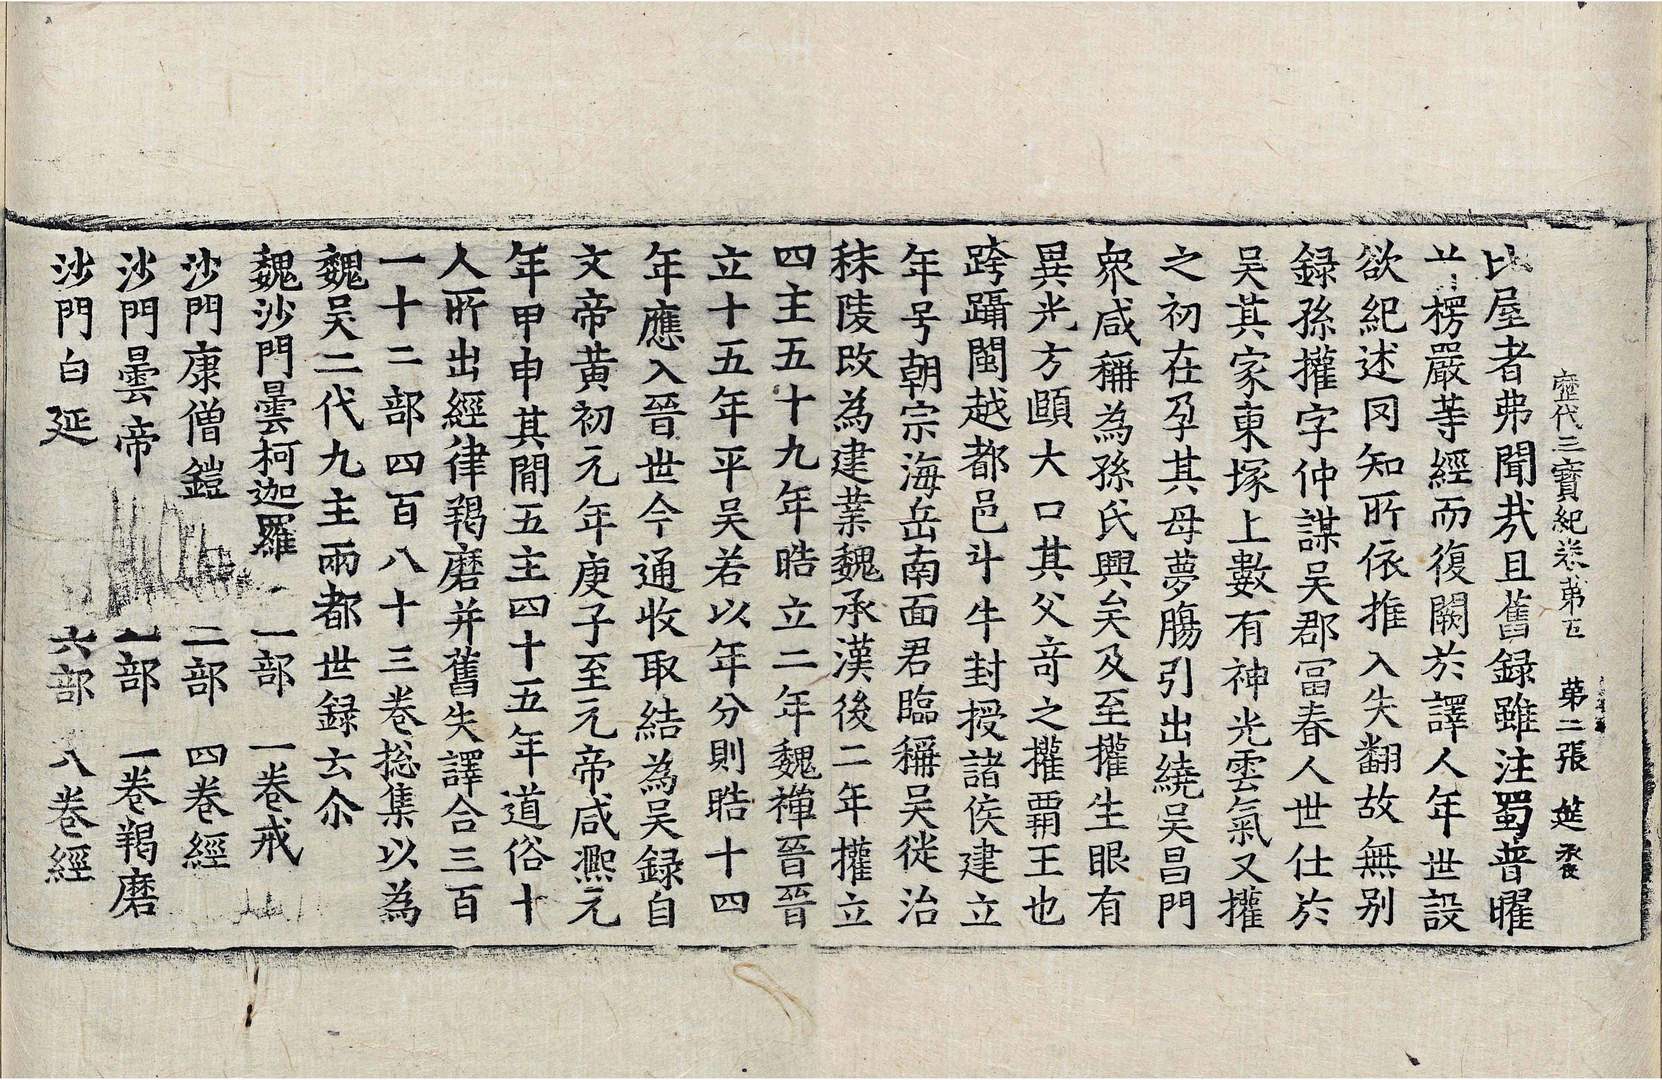 歷代三寶紀卷第五 第二張 筵
比屋者弗聞㢤且舊録雖注蜀普曜
楞嚴䓁經而復闕於譯人年世設
欲紀述罔知所依推入失翻故無别
録孫攉字仲謀吳郡冨春人世仕於
吳其家東塚上數有神光雲氣又攉
之初在孕其母夢膓引出繞吳昌門
衆咸稱為孫氏興矣及至攉生眼有
異光方頤大口其父竒之攉覇王也
跨躡閩越都邑斗牛封授諸侯建立
年号朝宗海岳南面君臨稱吳從治
秣陵改為建業魏承漢後二年攉立
四主五十九年晧立二年魏禅晉晉
立十五年平吳若以年分則晧十四
年應入晉世今通收取結為吳録自
文帝黄初元年庚子至元帝咸熈元
年甲申其間五主四十五年道俗十
人所出經律羯磨并舊失譯合三百
一十二部四百八十三卷捴集以為
魏吳二代九主兩都世録云尒
魏沙門曇柯迦羅 一部 一卷戒
沙門康僧鎧 二部 四卷經
沙門曇帝 一部 一卷羯磨
沙門白延 六部 八卷經